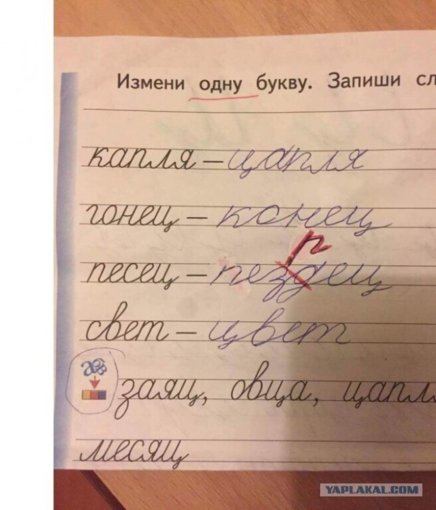 Измени одну букву. Запиши сл
капля – цапля
гонец – конец
р
песец – пездец
свет – цвет
заяц, овца, цапл
месяц
YAPLAKAL.COM